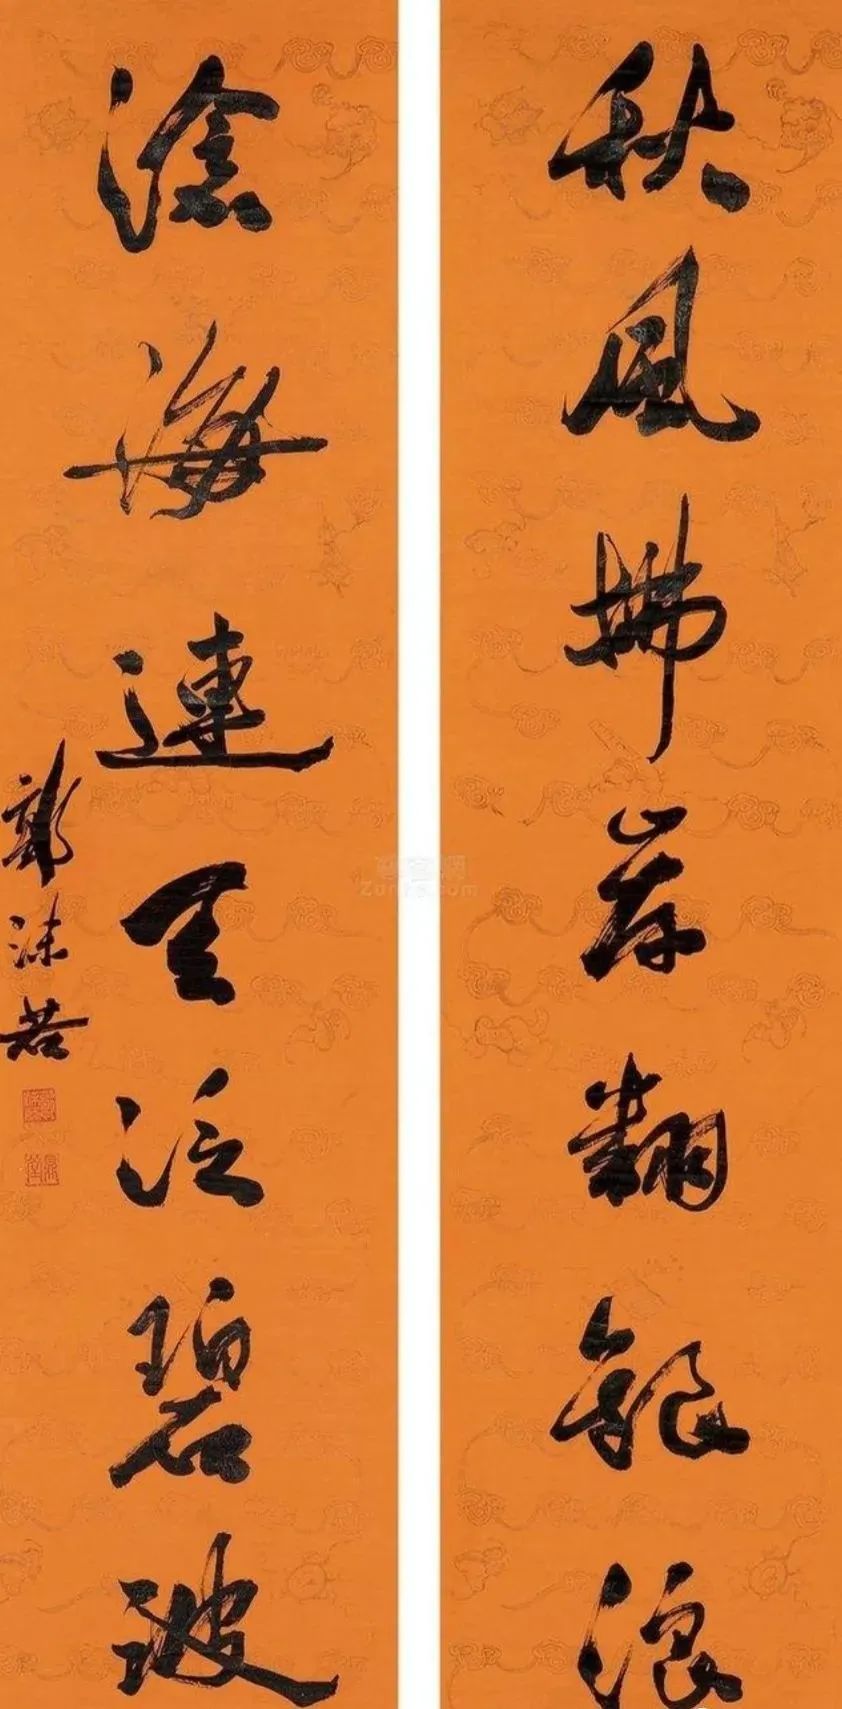 秋風拂岸翻銀浪
滄海連天泛碧波
郭沫若